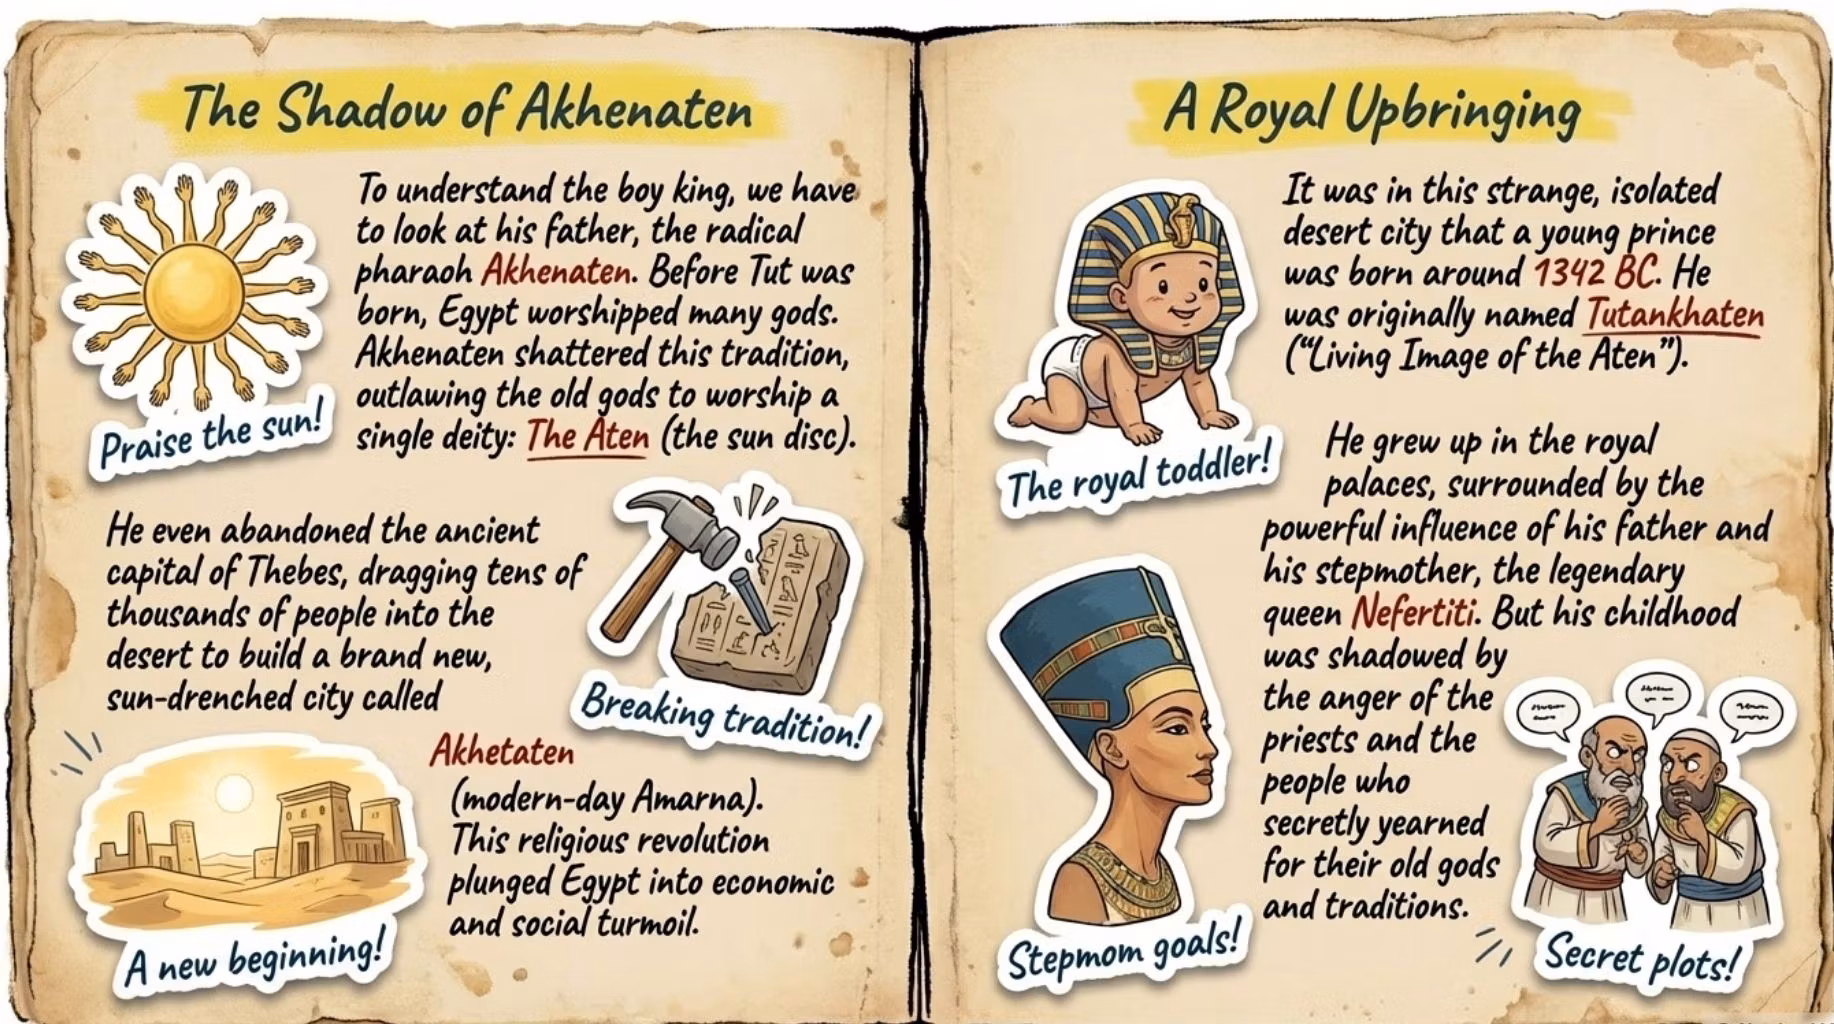 The Shadow of Akhenaten
To understand the boy king, we have
to look at his father, the radical
pharaoh Akhenaten. Before Tut was
born, Egypt worshipped many gods.
Akhenaten shattered this tradition,
outlawing the old gods to worship a
single deity: The Aten (the sun disc).
Praise the sun!
He even abandoned the ancient
capital of Thebes, dragging tens of
thousands of people into the
desert to build a brand new,
sun-drenched city called
Breaking tradition!
Akhetaten
(modern-day Amarna).
This religious revolution
plunged Egypt into economic
and social turmoil.
A new beginning!
A Royal Upbringing
It was in this strange, isolated
desert city that a young prince
was born around 1342 BC. He
was originally named Tutankhaten
("Living Image of the Aten").
The royal toddler!
He grew up in the royal
palaces, surrounded by the
powerful influence of his father and
his stepmother, the legendary
queen Nefertiti. But his childhood
was shadowed by
the anger of the
priests and the
people who
secretly yearned
for their old gods
and traditions.
Stepmom goals!
Secret plots!